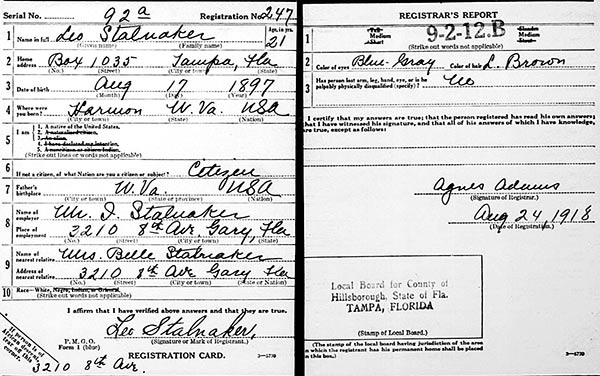 Serial No. 92a Registration No. 247
1 Name in full Leo Stalnaker Age, in yrs. 21
(Given name) (Family name)
2 Home address Box 1035 Tampa, Fla
(No.) (Street) (City or town) (State)
3 Date of birth Aug 17 1897
(Month) (Day) (Year)
4 Where were you born? Harmon W. Va. USA
(City or town) (State) (Nation)
5 I am
1. A native of the United States.
2. A naturalized citizen.
3. An alien.
4. I have declared my intention.
5. A noncitizen or citizen Indian.
(Strike out lines or words not applicable)
6 If not a citizen, of what Nation are you a citizen or subject? Citizen
7 Father's birthplace W. Va. USA
(City or town) (State or province) (Nation)
8 Name of employer Mr. I. Stalnaker
Place of employment 3210 8th Av. Gary, Fla
(No.) (Street) (City or town) (State)
9 Name of nearest relative Mrs. Belle Stalnaker
Address of nearest relative 3210 8th Av. Gary Fla
(No.) (Street) (City or town) (State or Nation)
10 Race—White, Negro, Indian, or Oriental.
(Strike out words not applicable)
I affirm that I have verified above answers and that they are true.
Leo Stalnaker,
(Signature or Mark of Registrant.)
P. M. G. O.
Form 1 (blue)
REGISTRATION CARD.
3—5720
If person is of African descent, tear off this corner.
3210 8th Av.
REGISTRAR'S REPORT
9-2-12.B
1 Tall Medium Short Slender Medium Stout
(Strike out words not applicable)
2 Color of eyes Blue-Gray Color of hair L. Brown
3 Has person lost arm, leg, hand, eye, or is he palpably physically disqualified (specify)? No
I certify that my answers are true; that the person registered has read his own answers;
that I have witnessed his signature, and that all of his answers of which I have knowledge,
are true, except as follows:
Agnes Adams
(Signature of Registrar.)
Aug 24, 1918
(Date of Registration.)
Local Board for County of
Hillsborough, State of Fla.
TAMPA, FLORIDA
(Stamp of Local Board.)
(The stamp of the local board having jurisdiction of the area
in which the registrant has his permanent home shall be placed
in this box.)
3—5720